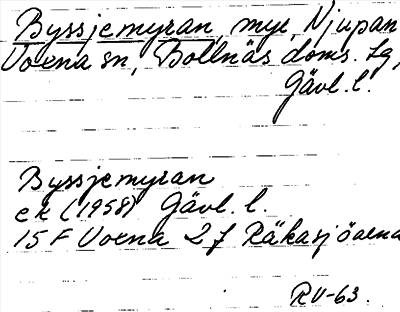 Byssjemyran, myr, Njupan
Voxna sn, Bollnäs doms. sg,
Gävl. l.
Byssjemyran
ek (1958) Gävl. l.
15 F Voxna 2 f Räkasjöarna
RV-63.